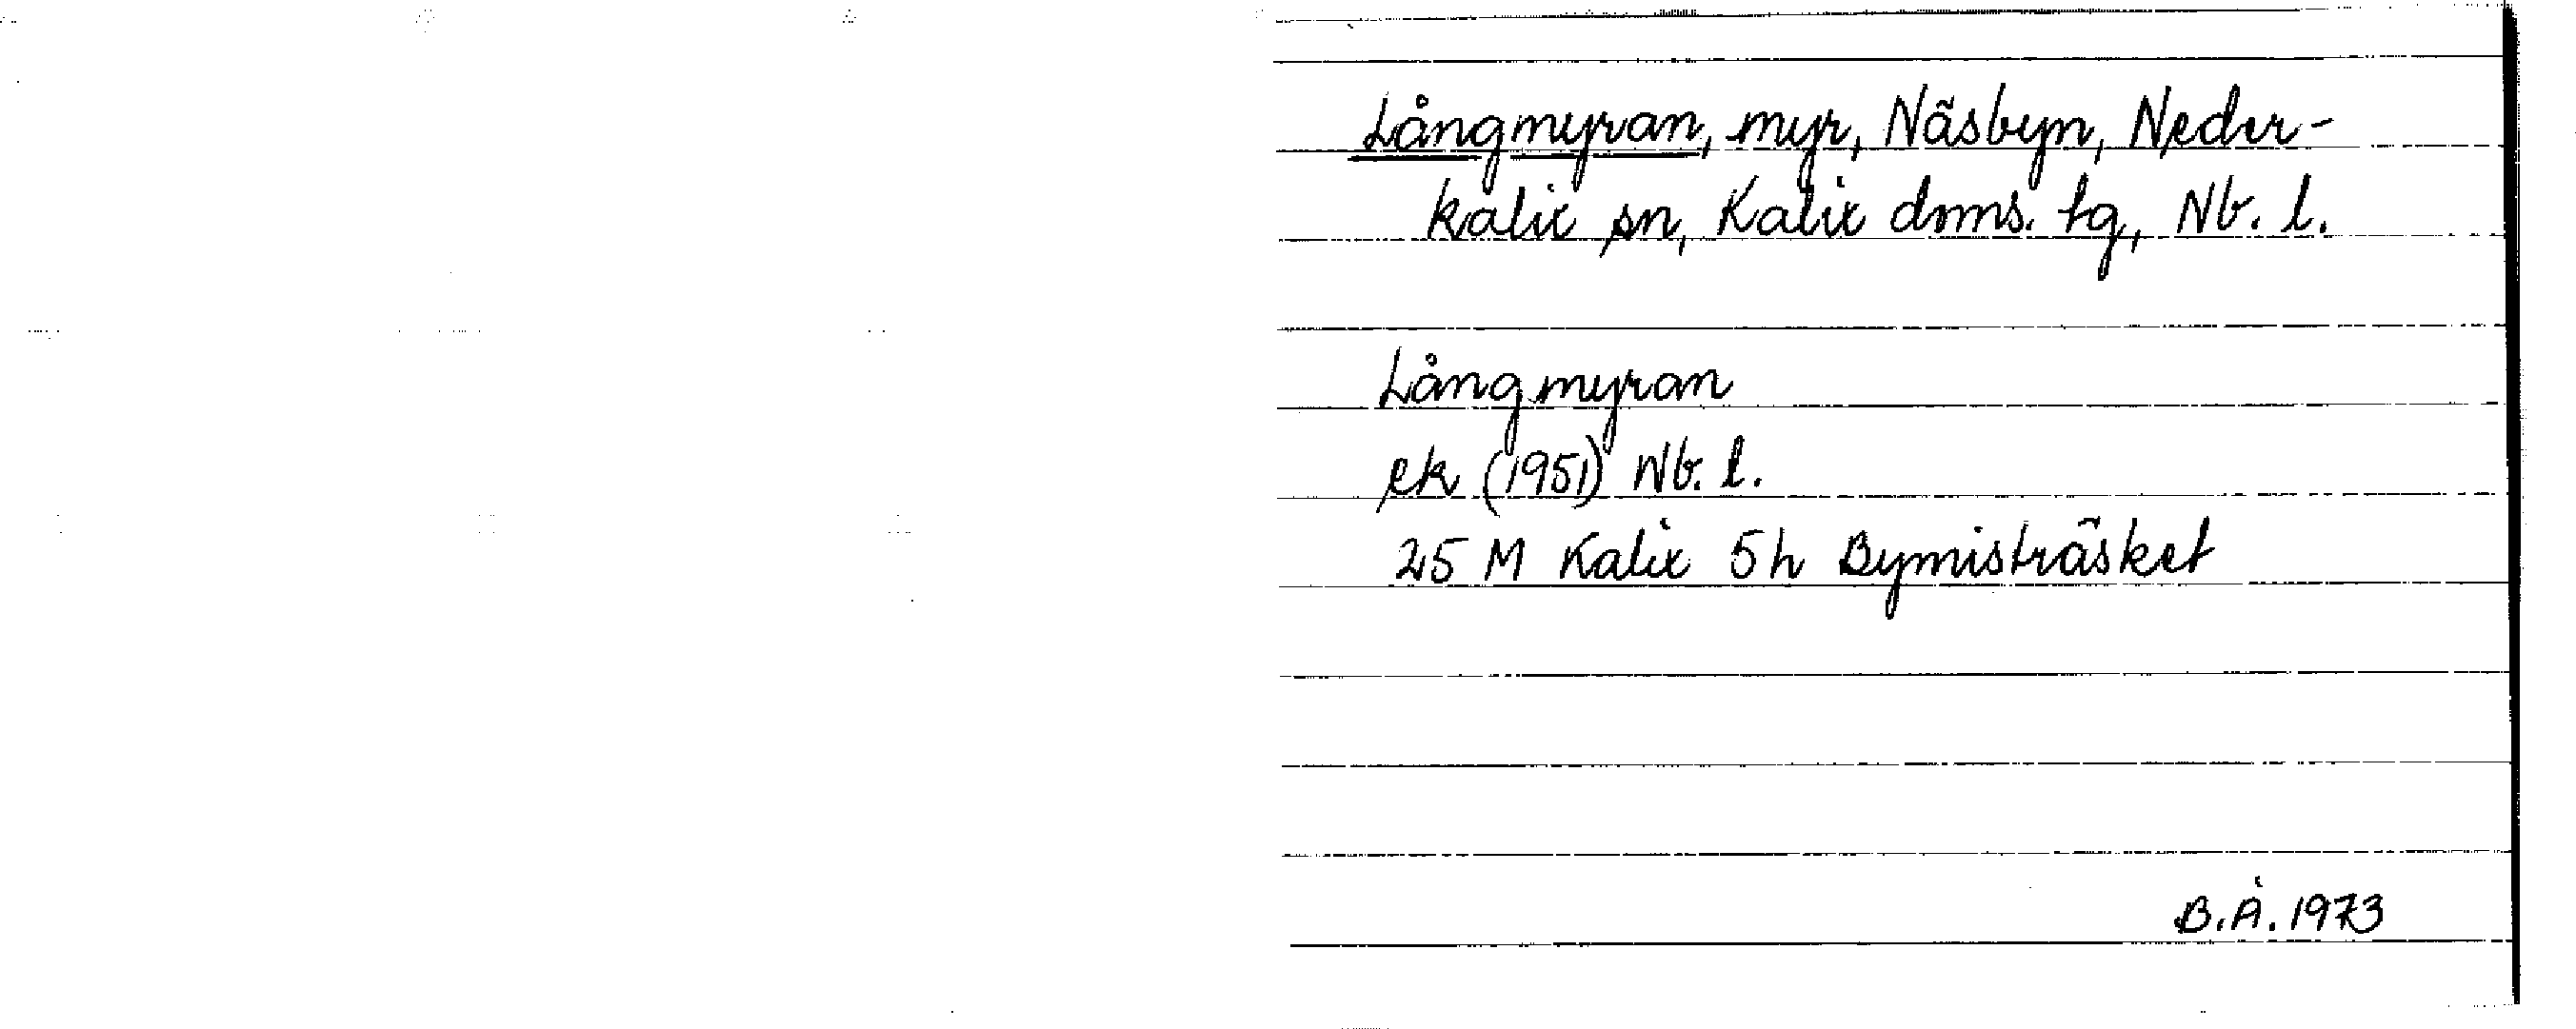 Långmyran, myr, Näsbyn, Neder-
kalix sn, Kalix doms. tg, Nb. l.
Långmyran
ek (1951) Nb. l.
25 M Kalix 5h Bymisträsket
B.Å. 1973